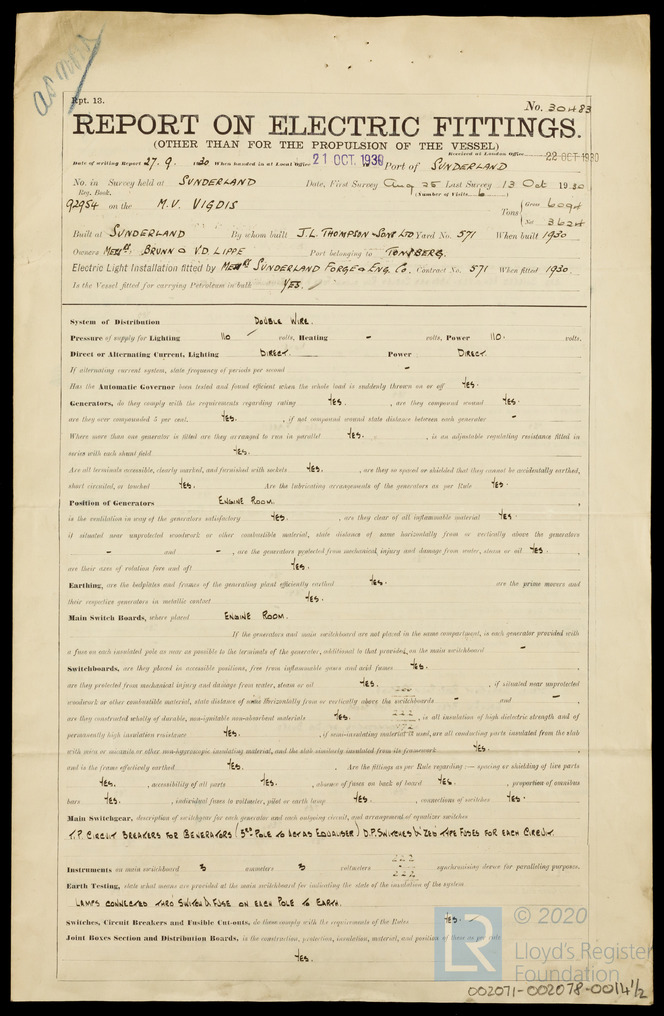 Rpt. 13.
No. 30483
REPORT ON ELECTRIC FITTINGS.
(OTHER THAN FOR THE PROPULSION OF THE VESSEL)
Received at London Office 22 OCT 1930
Date of writing Report 27.9. 1930 When handed in at Local Office 21 OCT. 1930 Port of SUNDERLAND
No. in Survey held at SUNDERLAND Date, First Survey Aug 25 Last Survey 13 Oct 1930
Reg. Book. (Number of Visits 6)
92954 on the M.V. VIGDIS Tons { Gross 6094
Net 3624
Built at SUNDERLAND By whom built J.L. THOMPSON & SONS LTD Yard No. 571 When built 1930
Owners MESSRS. BRUNN & VD LIPPE Port belonging to TONSBERG.
Electric Light Installation fitted by MESSRS SUNDERLAND FORGE & ENG. CO. Contract No. 571 When fitted 1930.
Is the Vessel fitted for carrying Petroleum in bulk YES.
System of Distribution DOUBLE WIRE.
Pressure of supply for Lighting 110 volts, Heating - volts, Power 110. volts.
Direct or Alternating Current, Lighting DIRECT. Power DIRECT.
If alternating current system, state frequency of periods per second -
Has the Automatic Governor been tested and found efficient when the whole load is suddenly thrown on or off YES.
Generators, do they comply with the requirements regarding rating YES. , are they compound wound YES.
are they over compounded 5 per cent. YES. , if not compound wound state distance between each generator -
Where more than one generator is fitted are they arranged to run in parallel YES. , is an adjustable regulating resistance fitted in
series with each shunt field YES.
Are all terminals accessible, clearly marked, and furnished with sockets YES. , are they so spaced or shielded that they cannot be accidentally earthed,
short circuited, or touched YES. Are the lubricating arrangements of the generators as per Rule YES.
Position of Generators ENGINE ROOM.
is the ventilation in way of the generators satisfactory YES. , are they clear of all inflammable material YES.
if situated near unprotected woodwork or other combustible material, state distance of same horizontally from or vertically above the generators
- and - , are the generators protected from mechanical injury and damage from water, steam or oil YES.
are their axes of rotation fore and aft YES.
Earthing, are the bedplates and frames of the generating plant efficiently earthed YES. are the prime movers and
their respective generators in metallic contact YES.
Main Switch Boards, where placed ENGINE ROOM.
If the generators and main switchboard are not placed in the same compartment, is each generator provided with
a fuse on each insulated pole as near as possible to the terminals of the generator, additional to that provided on the main switchboard -
Switchboards, are they placed in accessible positions, free from inflammable gases and acid fumes YES.
are they protected from mechanical injury and damage from water, steam or oil YES. , if situated near unprotected
woodwork or other combustible material, state distance of same Horizontally from or vertically above the switchboards - and -
are they constructed wholly of durable, non-ignitable non-absorbent materials YES. , is all insulation of high dielectric strength and of
permanently high insulation resistance YES. , if semi-insulating material is used, are all conducting parts insulated from the slab
with mica or micanite or other non-hygroscopic insulating material, and the slab similarly insulated from its framework YES.
and is the frame effectively earthed YES. Are the fittings as per Rule regarding :— spacing or shielding of live parts
YES. , accessibility of all parts YES. , absence of fuses on back of board YES. , proportion of omnibus
bars YES. , individual fuses to voltmeter, pilot or earth lamp YES. , connections of switches YES.
Main Switchgear, description of switchgear for each generator and each outgoing circuit, and arrangement of equaliser switches
T.P. CIRCUIT BREAKERS FOR GENERATORS (3RD POLE TO ACT AS EQUALISER) D.P. SWITCHES & ZED TYPE FUSES FOR EACH CIRCUIT.
Instruments on main switchboard 3 ammeters 3 voltmeters synchronising device for paralleling purposes.
Earth Testing, state what means are provided at the main switchboard for indicating the state of the insulation of the system
LAMPS CONNECTED THRO SWITCH & FUSE ON EACH POLE TO EARTH.
Switches, Circuit Breakers and Fusible Cut-outs, do these comply with the requirements of the Rules YES.
Joint Boxes Section and Distribution Boards, is the construction, protection, insulation, material, and position of these as per rule
YES.
© 2020
LR
Lloyd's Register
Foundation
002071-002078-0014 1/2